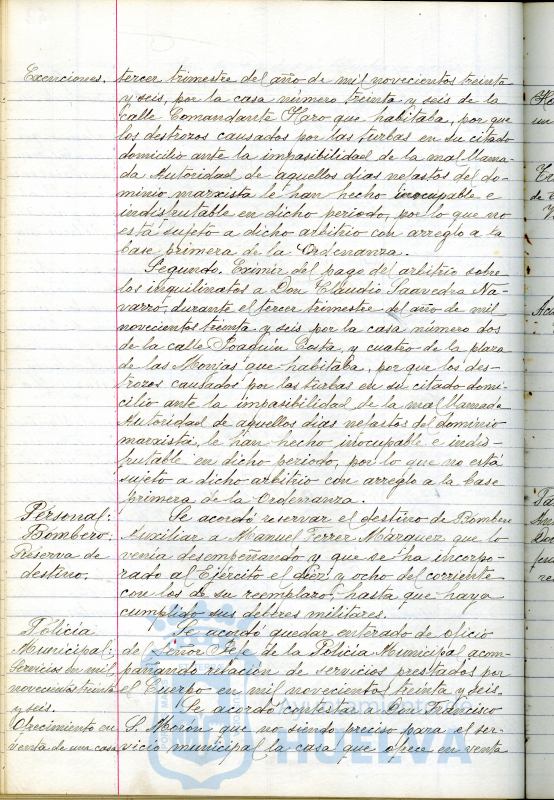 Exenciones. tercer trimestre del año de mil novecientos treinta
y seis, por la casa número treinta y seis de la
calle Comandante Haro que habitaba, por que
los destrozos causados por las turbas en su citado
domicilio ante la impasibilidad de la mal llama-
da Autoridad de aquellos dias nefastos del do-
minio marxista le han hecho inocupable e
indisfrutable en dicho periodo, por lo que no
está sujeto a dicho arbitrio con arreglo a la
base primera de la Ordenanza.
Segundo. Eximir del pago del arbitrio sobre
los inquilinatos a Don Claudio Saavedra Na-
varro, durante el tercer trimestre del año de mil
novecientos treinta y seis por la casa número dos
de la calle Joaquín Costa, y cuatro de la plaza
de las Monjas que habitaba, por que los des-
trozos causados por las turbas en su citado domi-
cilio ante la impasibilidad de la mal llamada
Autoridad de aquellos dias nefastos del dominio
marxista, le han hecho inocupable e indis-
frutable en dicho periodo, por lo que no está
sujeto a dicho arbitrio con arreglo a la base
primera de la Ordenanza.
Personal: Se acordó reservar el destino de Bombero
Bombero: Auxiliar a Manuel Ferrer Márquez que lo
Reserva de venía desempeñando y que se ha incorpo-
destino. rado al Ejército el diez y ocho del corriente
con los de su reemplazo, hasta que haya
cumplido sus deberes militares.
Policía Se acordó quedar enterado de oficio
Municipal: de Señor Jefe de la Policía Municipal acom-
Servicios en mil pañando relación de servicios prestados por
novecientos treinta el Cuerpo en mil novecientos treinta y seis.
y seis. Se acordó contestar a Don Francisco
Ofrecimiento en S. Morón que no siendo preciso para el ser-
venta de una casa vicio municipal la casa que ofrece en venta
HUELVA